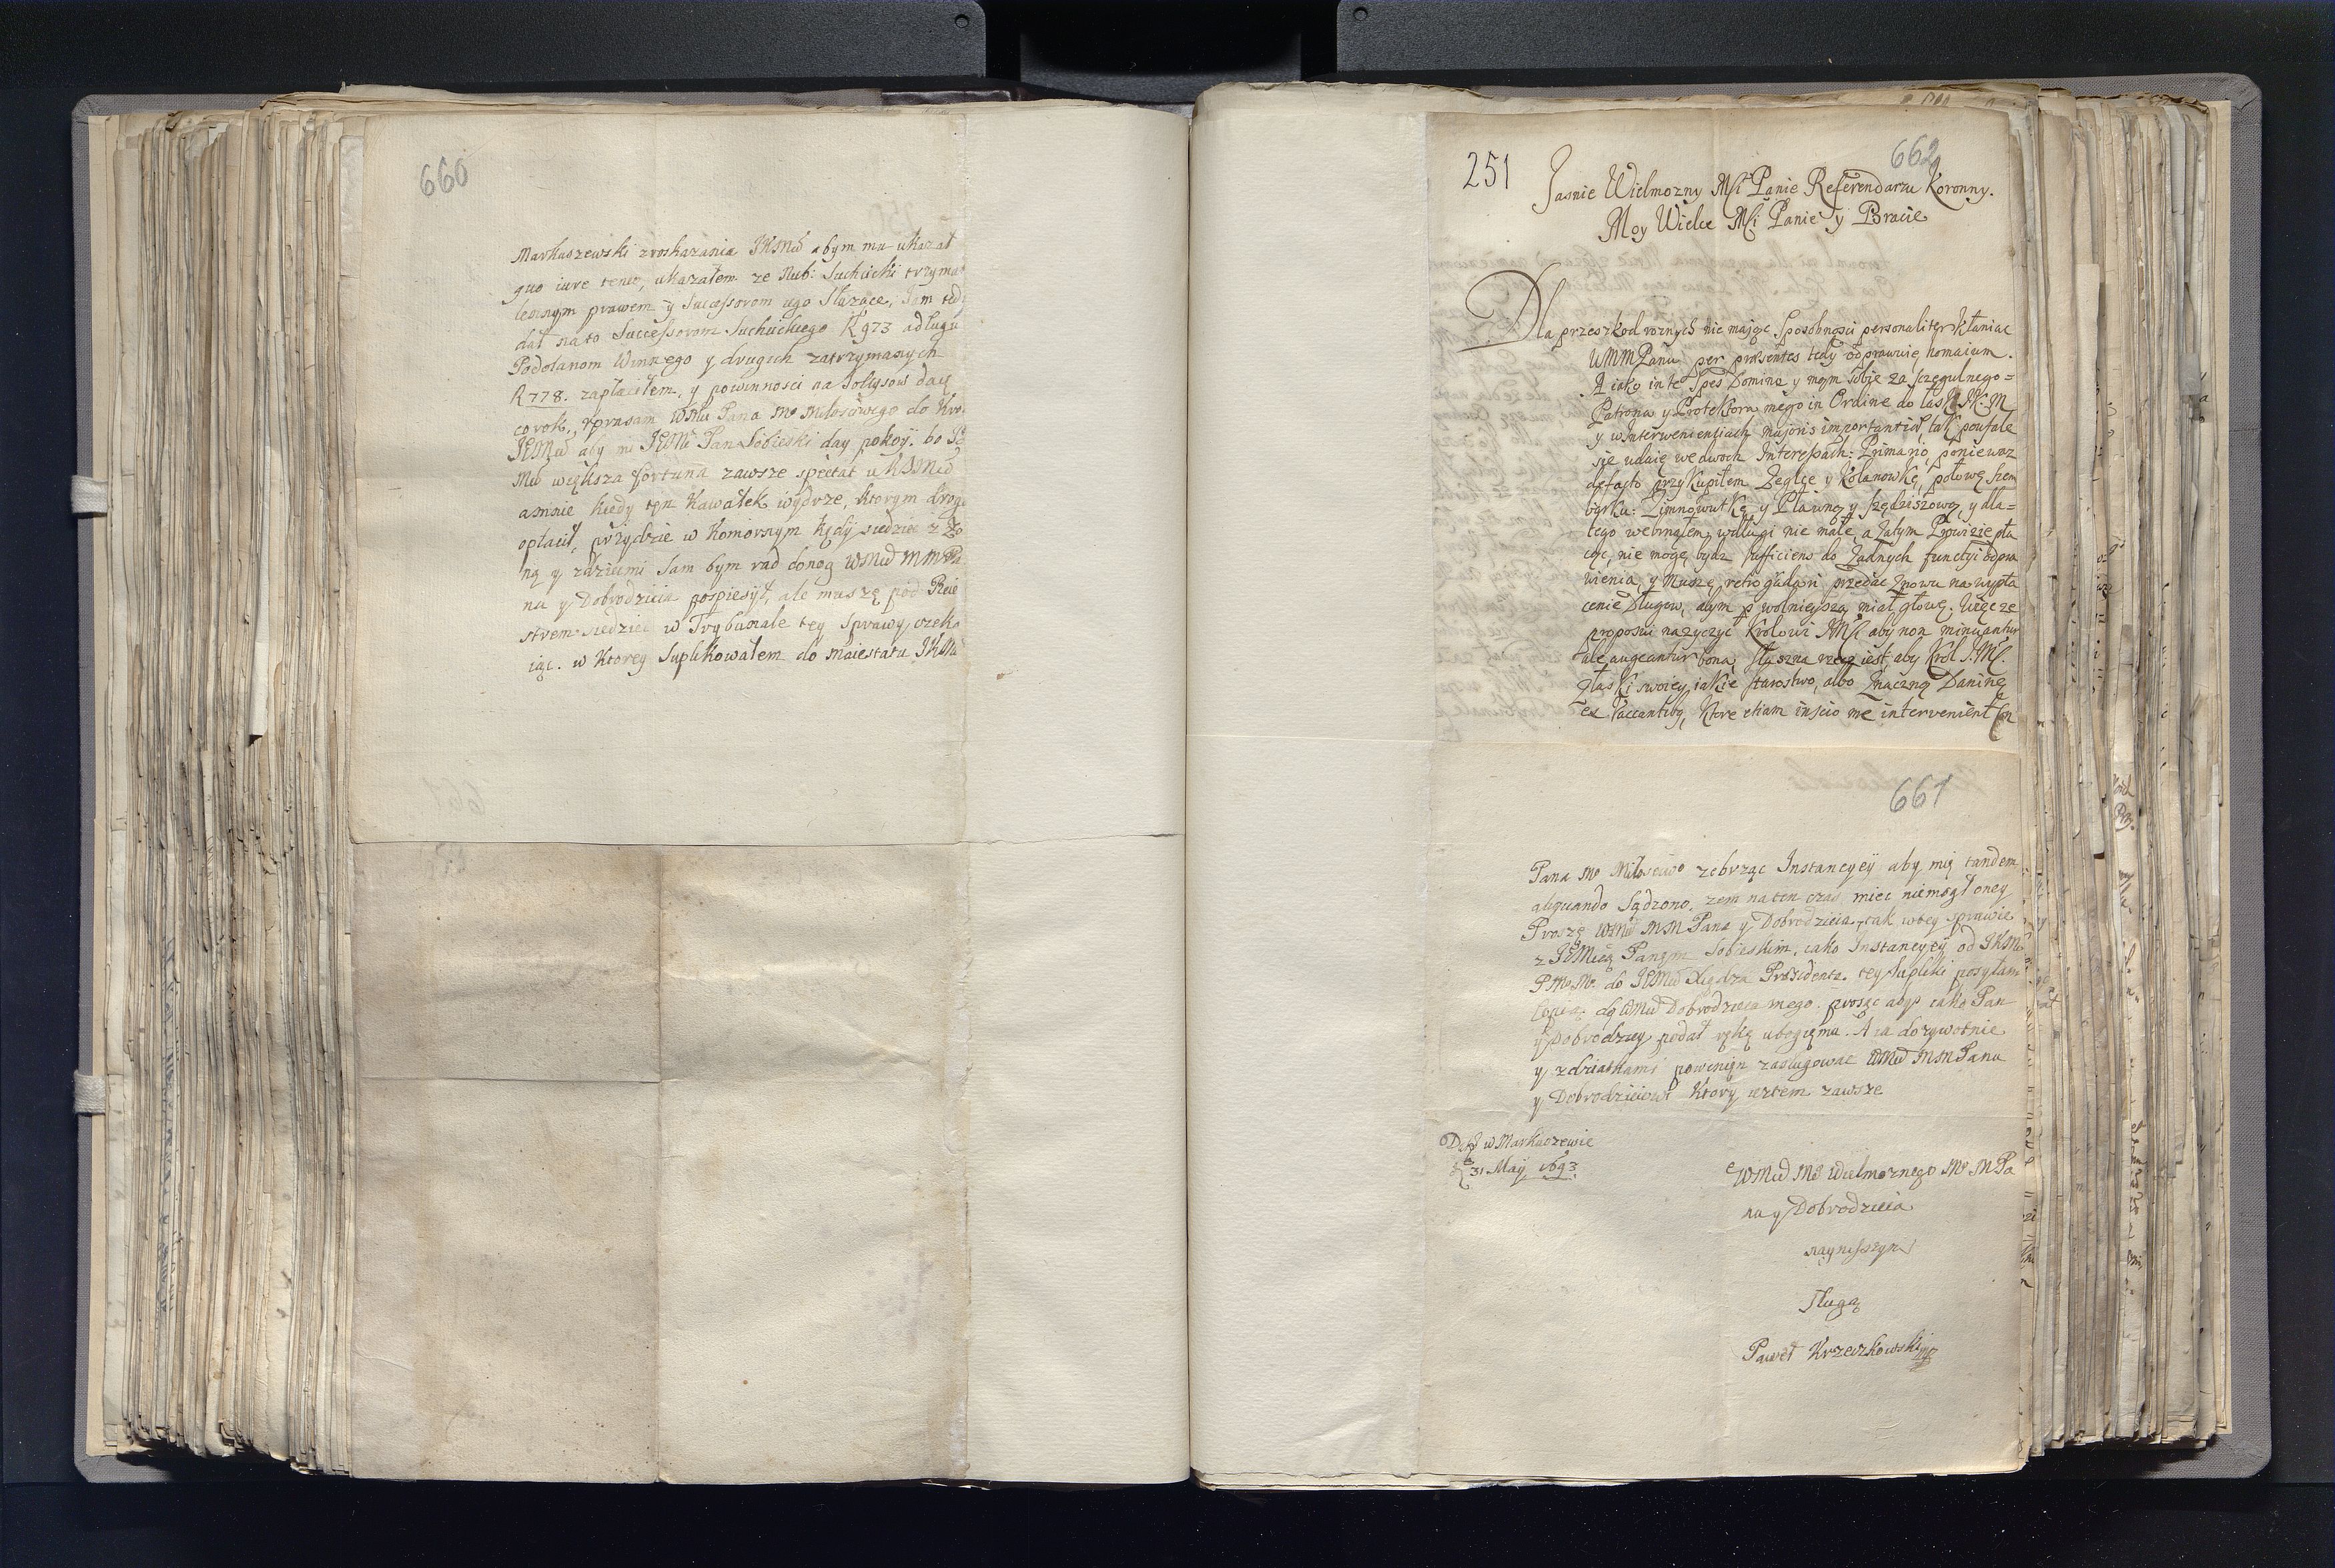 660
Markuszewski z roskazania JKMci abym mu ukazał
quo iure teneo, ukazałem ze Nub: Suchicki trzymał
lennym prawem y Successorom iego służące, Jam tedy
dał na to Successorom Suchickiego R 973 a długu
Podolanom Winnego y drugich zatrzymanych
R 778. zapłaciłem, y powinnosci na Sołtysow daię
co rok, upraszam WMci Pana Mo Miłosciwego do Kro
JKMci aby mi JKMc Pan Sobieski dał pokoÿ. bo Je
Mci większa fortuna zawsze spectat u KJMci
a mnie kiedy ten Kawałek wydrze, ktorym drogo
opłacił, przydzie w Komornym kędy siedziec z Zo
ną y zdziecmi Sam bym rad do nog WMci MMPa
na y Dobrodzieia pospieszył, ale muszę pod Reie
strem siedziec w Trybunale tey Sprawy czeka
iąc. w Ktorey Suplikowałem do Maiestatu JKMci
251
662
Jasnie Wielmozny Msci Panie Referendarzu Koronny.
Moy Wielce Msci Panie y Bracie
Dla przeszkod roznych nie maiąc sposobnosci personaliter kłaniac
WMMPanu per præsentes tedy odprawuię homaium.
A iako in te Spes Domine y mym sobie za szczegulnego=
Patrona y Protektora mego in Ordine do łask JK.M
y w Interweniencÿach majoris importantiæ tak poufale
się udaię we dwoch Interessach: Primario, poniewaz
de facto przykupiłem Zeglce y Kolanowkę, połowę Szem
barku: Zimnowutkę y Pławną y Szędziszową, y dla=
tego webrnąłem w długi nie małe, a Zatym Prowizie pła
cąc, nie mogę bydz sufficiens do Zadnych functyi odpra
wienia, y Muszę retrogradari przedac znowu na wypła
cenie Długow, abym wolnieyszą miał głowę. Więc ze
proposui nazyczyc Krolowi JMsci aby non minuantur
ale augeantur bona, słuszna rzecz iest, aby Krol J.Msc.
z łaski swoiey iakie Starostwo, albo Znaczną Daninę
ex Vaccantibq, Ktore etiam inscio me intervenient Con
661
Pana Mo Miłosciwo zebrząc Instancyeÿ aby mię tandem
aliquando Sądzono, zem na ten czas miec niemogł oney
Proszę WMci MM Pana y Dobrodzieia, tak w tey sprawie
z JKMcią Panem Sobieskim, iako Instancyeÿ od JKMci
PMoMo do JKMci Xiędza Prezidenta. tey supliki posyłam
Copią do WMci Dobrodzieia mego. prosząc abys iako Pan
y Dobrodziey podał rękę ubogiemu. A ia dozywotnie
y z dziatkami powinien zasługowac WMci MM Panu
y Dobrodzieiowi Ktory iestem zawsze
Dat w Markuszewie
31 Maÿ 1693.
WMci Mo Wielmoznego MoMPa
na y Dobrodzieia
naynizszym
Sługą
Paweł Krzeczkowski mp